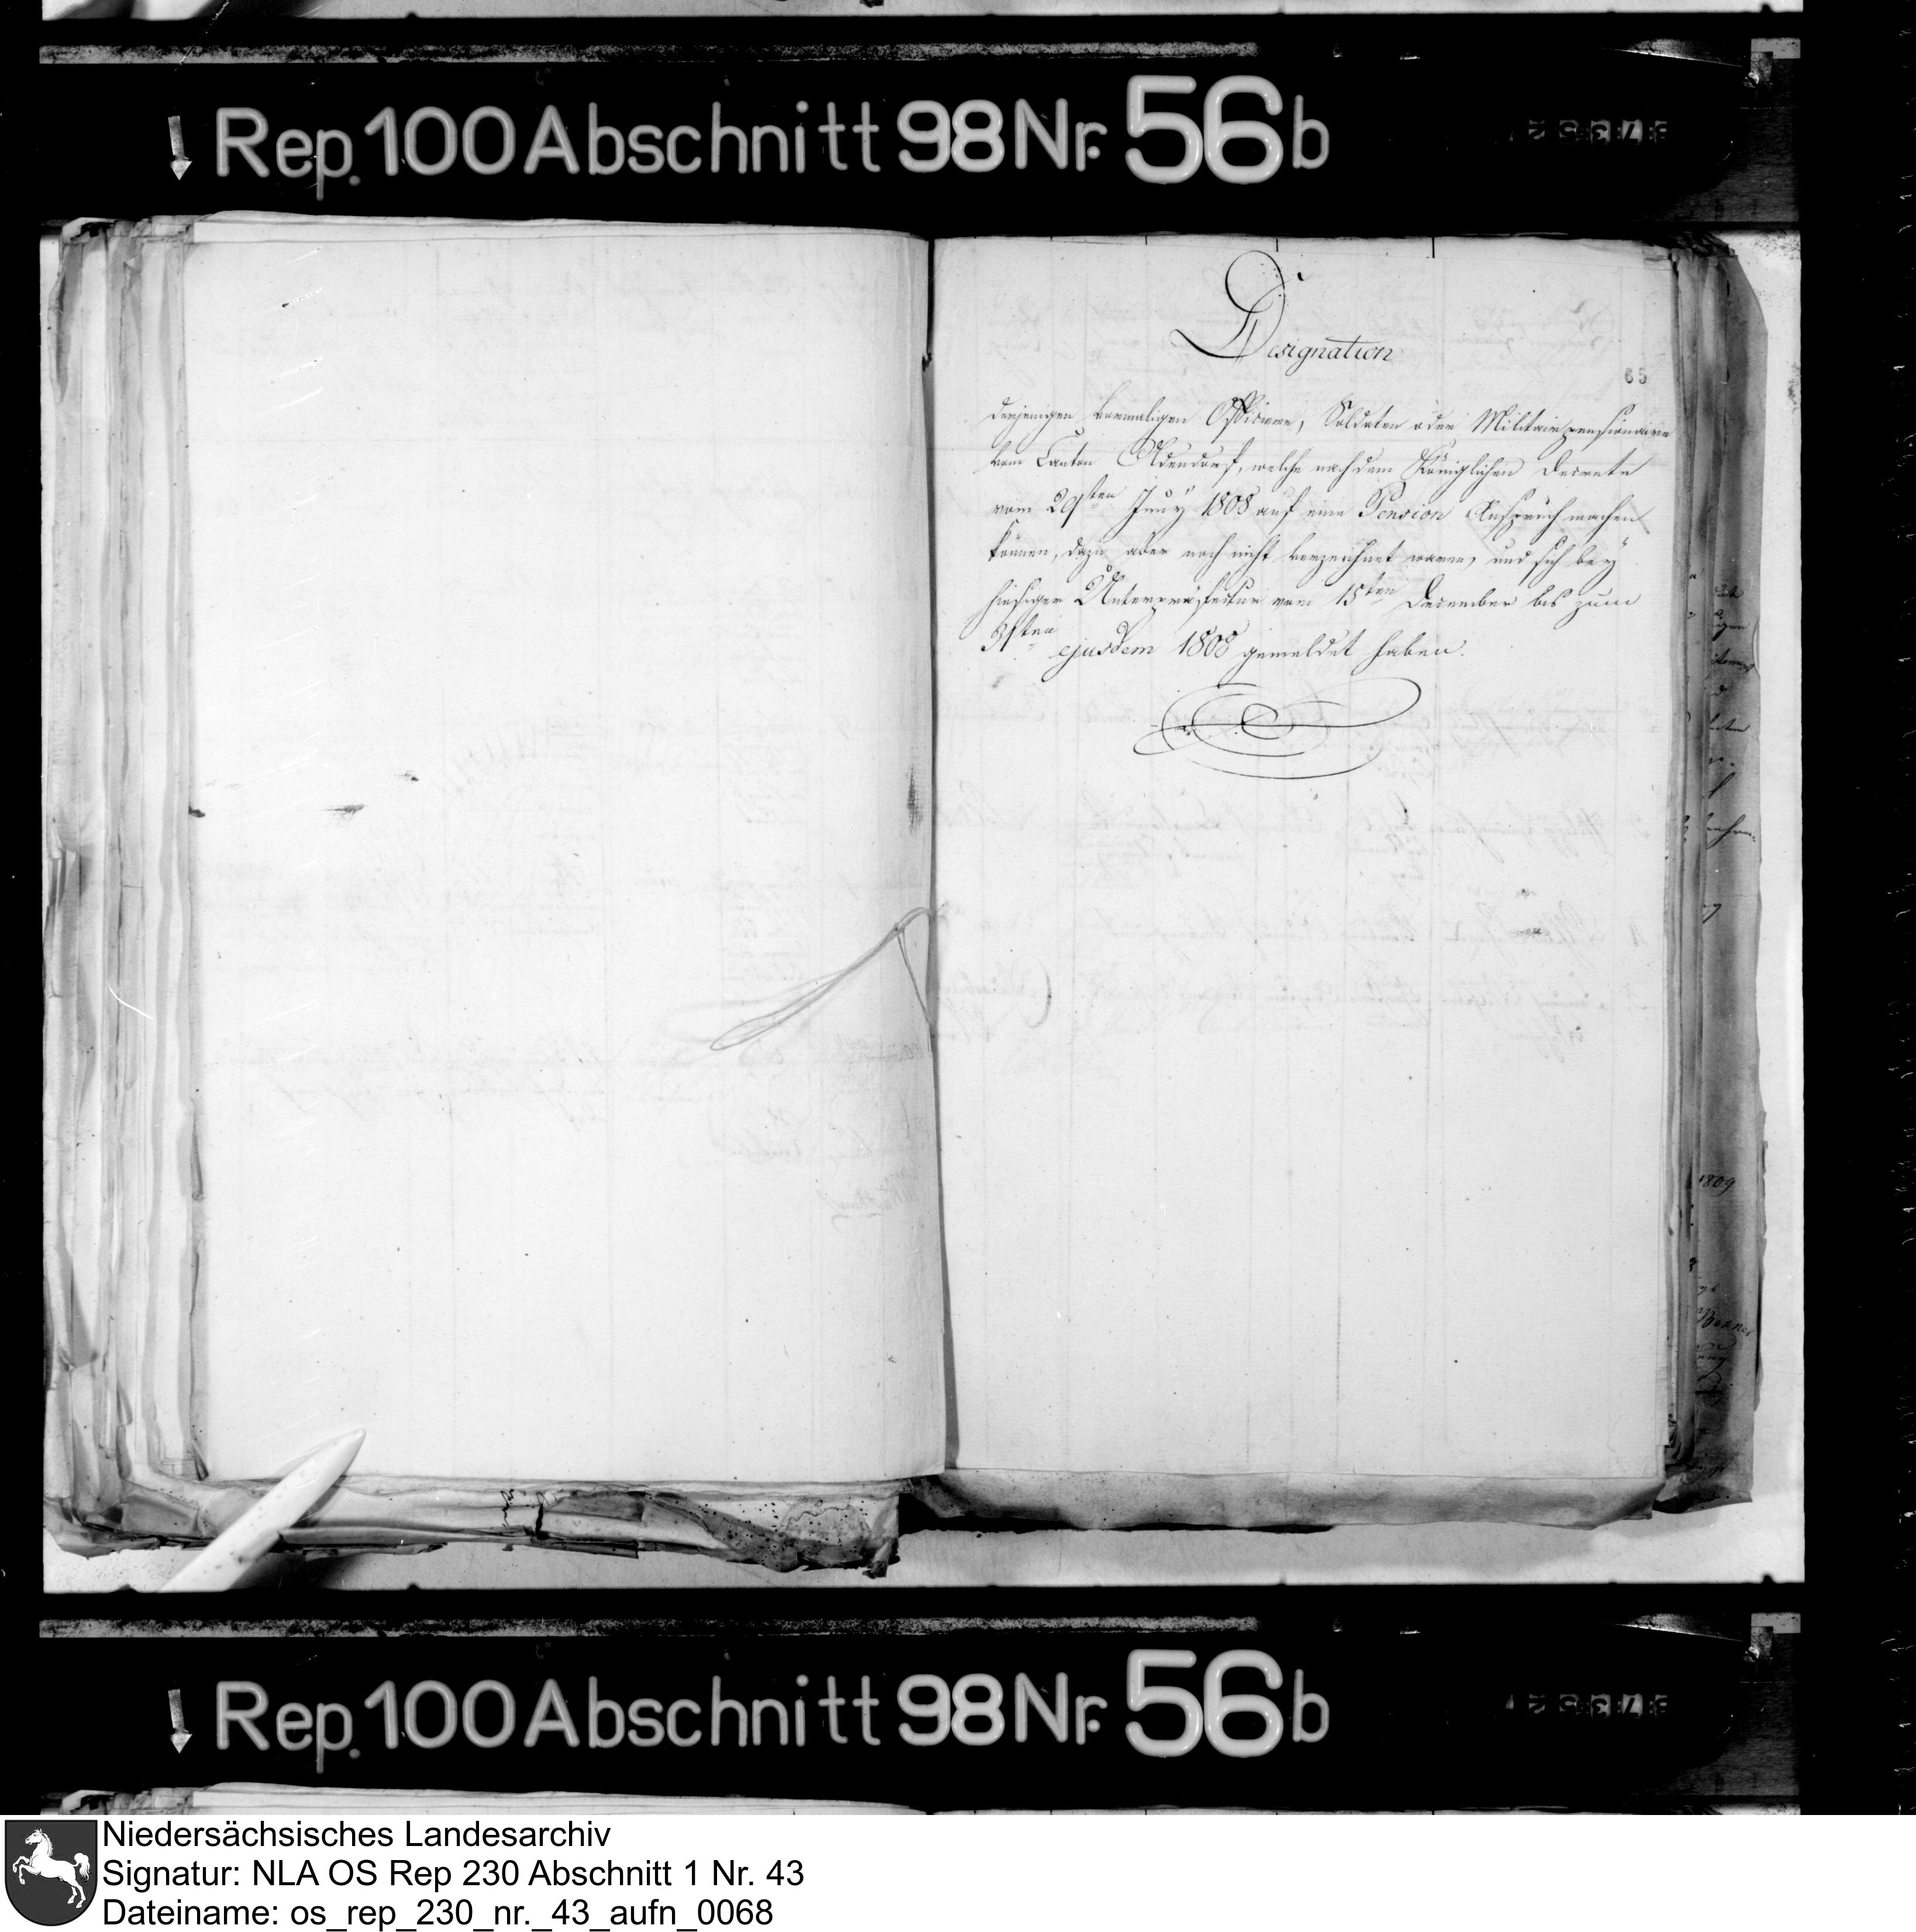 Rep. 100 Abschnitt 98 Nr. 56 b
Designation
65
derjenigen vormaligen Officiere, Soldaten oder Militairpensionaire
vom Canton Oldendorf, welche nach dem Königlichen Decrete
vom 29sten Juny 1808 auf eine Pension Anspruch machen
können, dazu aber noch nicht verzeichnet waren, und sich bey
hiesiger Unterpräfectur vom 15ten December bis zum
31sten ejusdem 1808 gemeldet haben.
1809
Rep. 100 Abschnitt 98 Nr. 56 b
Niedersächsisches Landesarchiv
Signatur: NLA OS Rep 230 Abschnitt 1 Nr. 43
Dateiname: os_rep_230_nr._43_aufn_0068